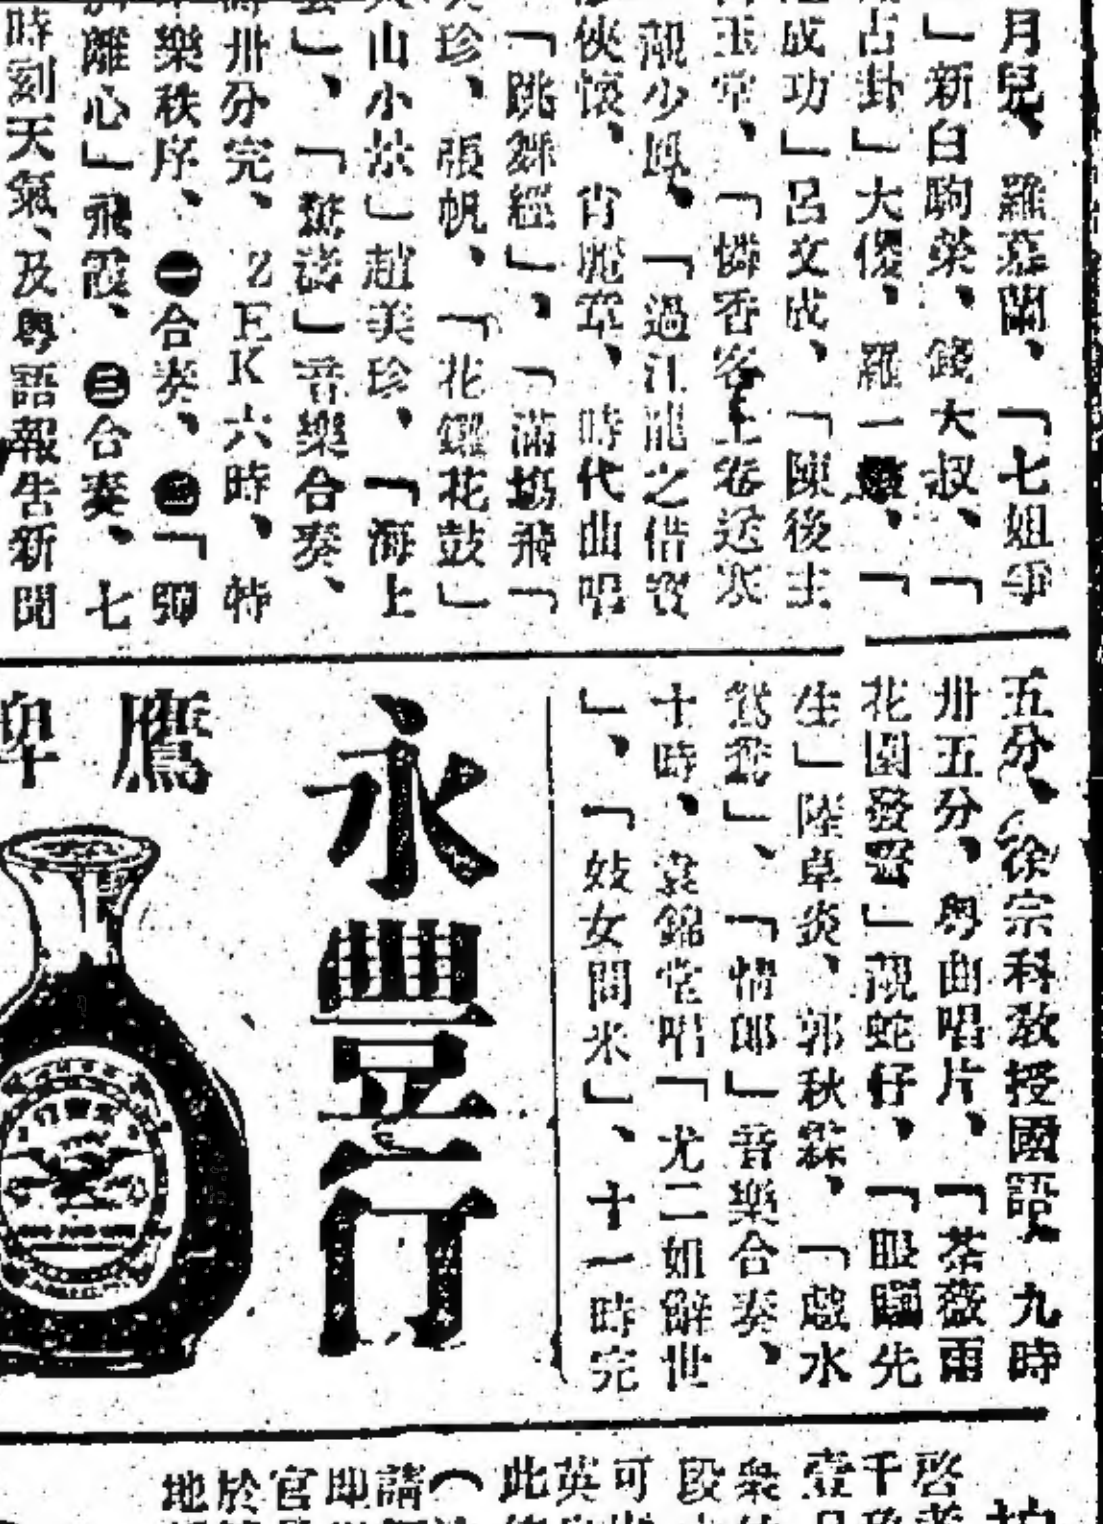 月兒、羅慕蘭、「七姐爭
」新白駒榮、錢大叔、「
占卦」大傻、羅一、「
成功」呂文成、「陳後主
玉堂、「憐香客上卷送寒
靚少鳳、「過江龍之借寶
俠懷、肖麗章、時代曲唱
「跳舞經」、「滿塲飛「
珍、張帆、「花鑼花鼓」
山小妹」趙美珍、「海上
」、「驚濤」音樂合奏、
卅分完、ZEK六時、特
樂秩序、㊀合奏、㊁「彈
離心」飛霞、㊂合奏、七
時刻天氣、及粵語報告新聞
五分、徐宗科敎授國語、九時
卅五分、粵曲唱片、「茶薇雨
花園發」靚蛇仔、「眼矖先
生」陸卓炎、郭秋霖、「戲水
鴛鴦」、「情郎」音樂合奏、
十時、袁錦堂唱「尤二姐辭世
」、「妓女問米」、十一時完
永豐行
鷹
啓
千
壹
衆
段
可
英
此
（
請
即
官
於
地